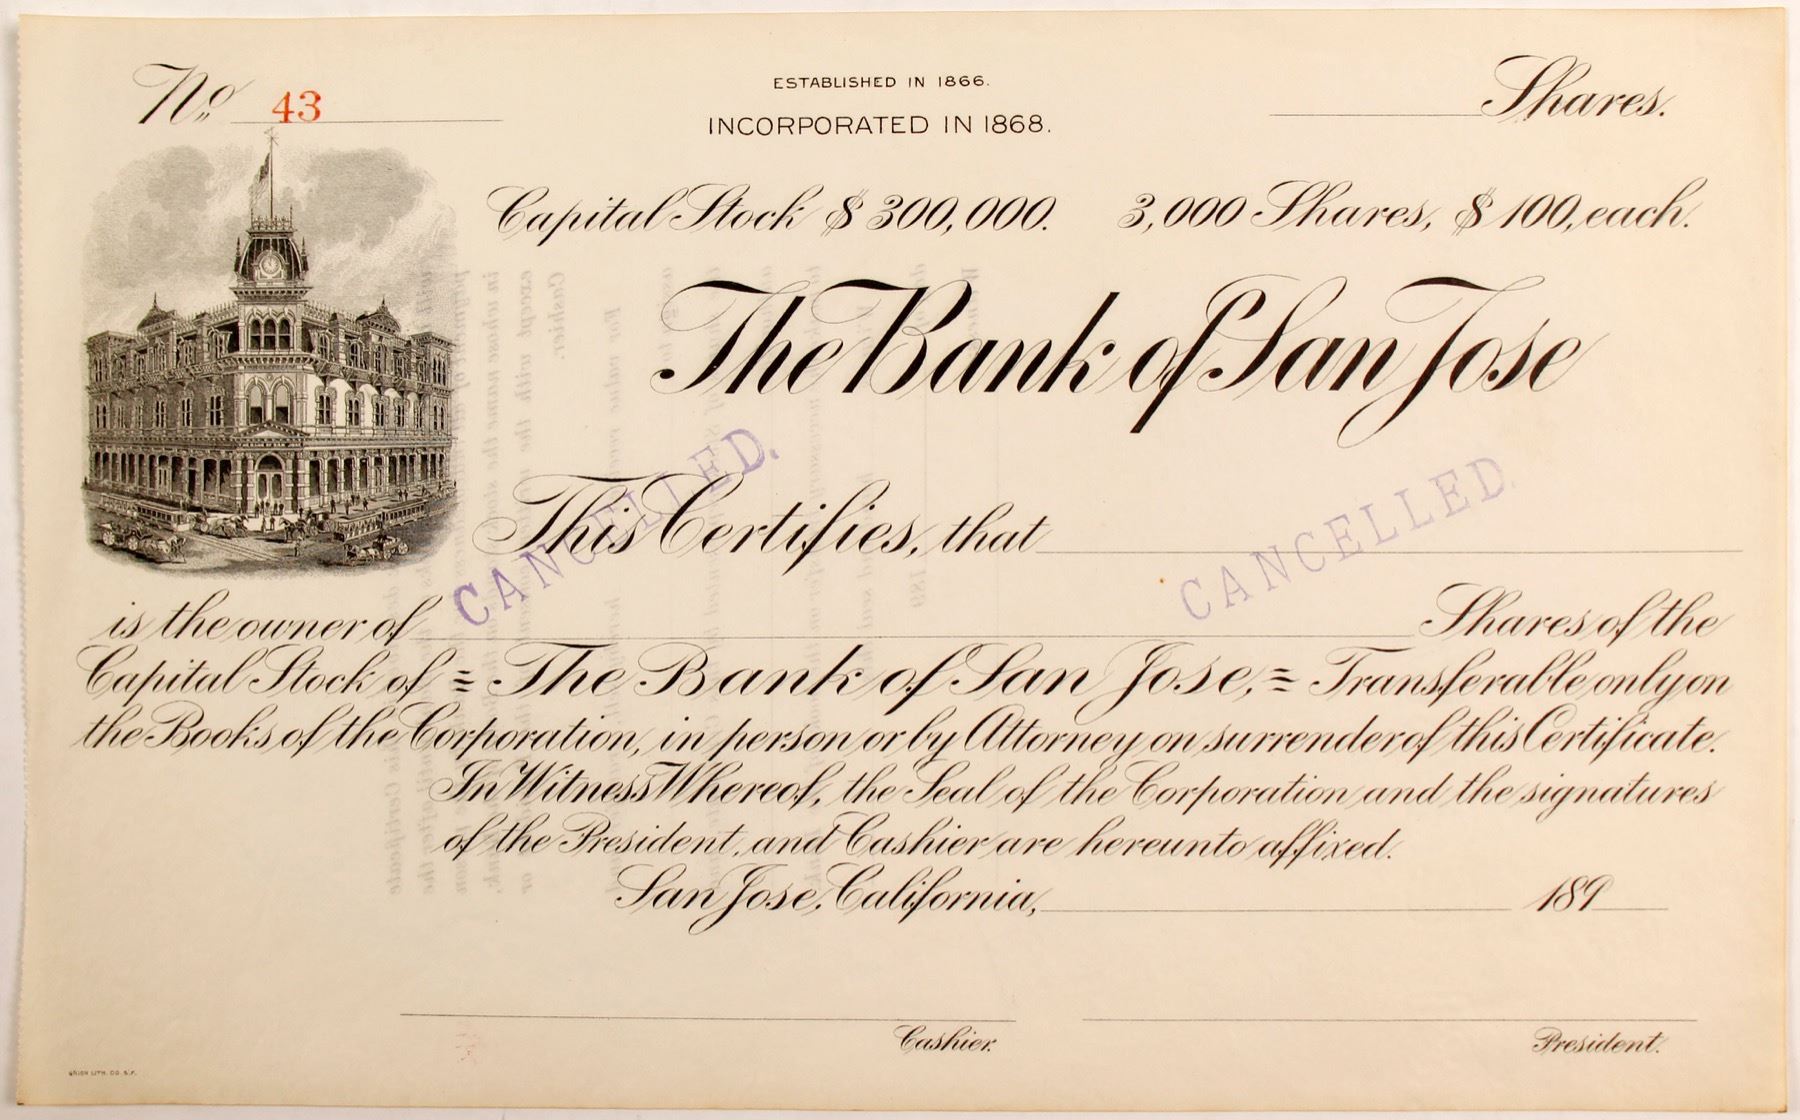 No. 43
ESTABLISHED IN 1866.
INCORPORATED IN 1868.
Shares.
Capital Stock $300,000. 3,000 Shares, $100, each.
The Bank of San Jose
This Certifies, that
CANCELLED.
CANCELLED.
is the owner of Shares of the
Capital Stock of = The Bank of San Jose, = Transferable only on
the Books of the Corporation, in person or by Attorney on surrender of this Certificate.
In Witness Whereof, the Seal of the Corporation and the signatures
of the President, and Cashier are hereunto affixed.
San Jose, California, 189
Cashier.
President.
UNION LITH. CO. S.F.